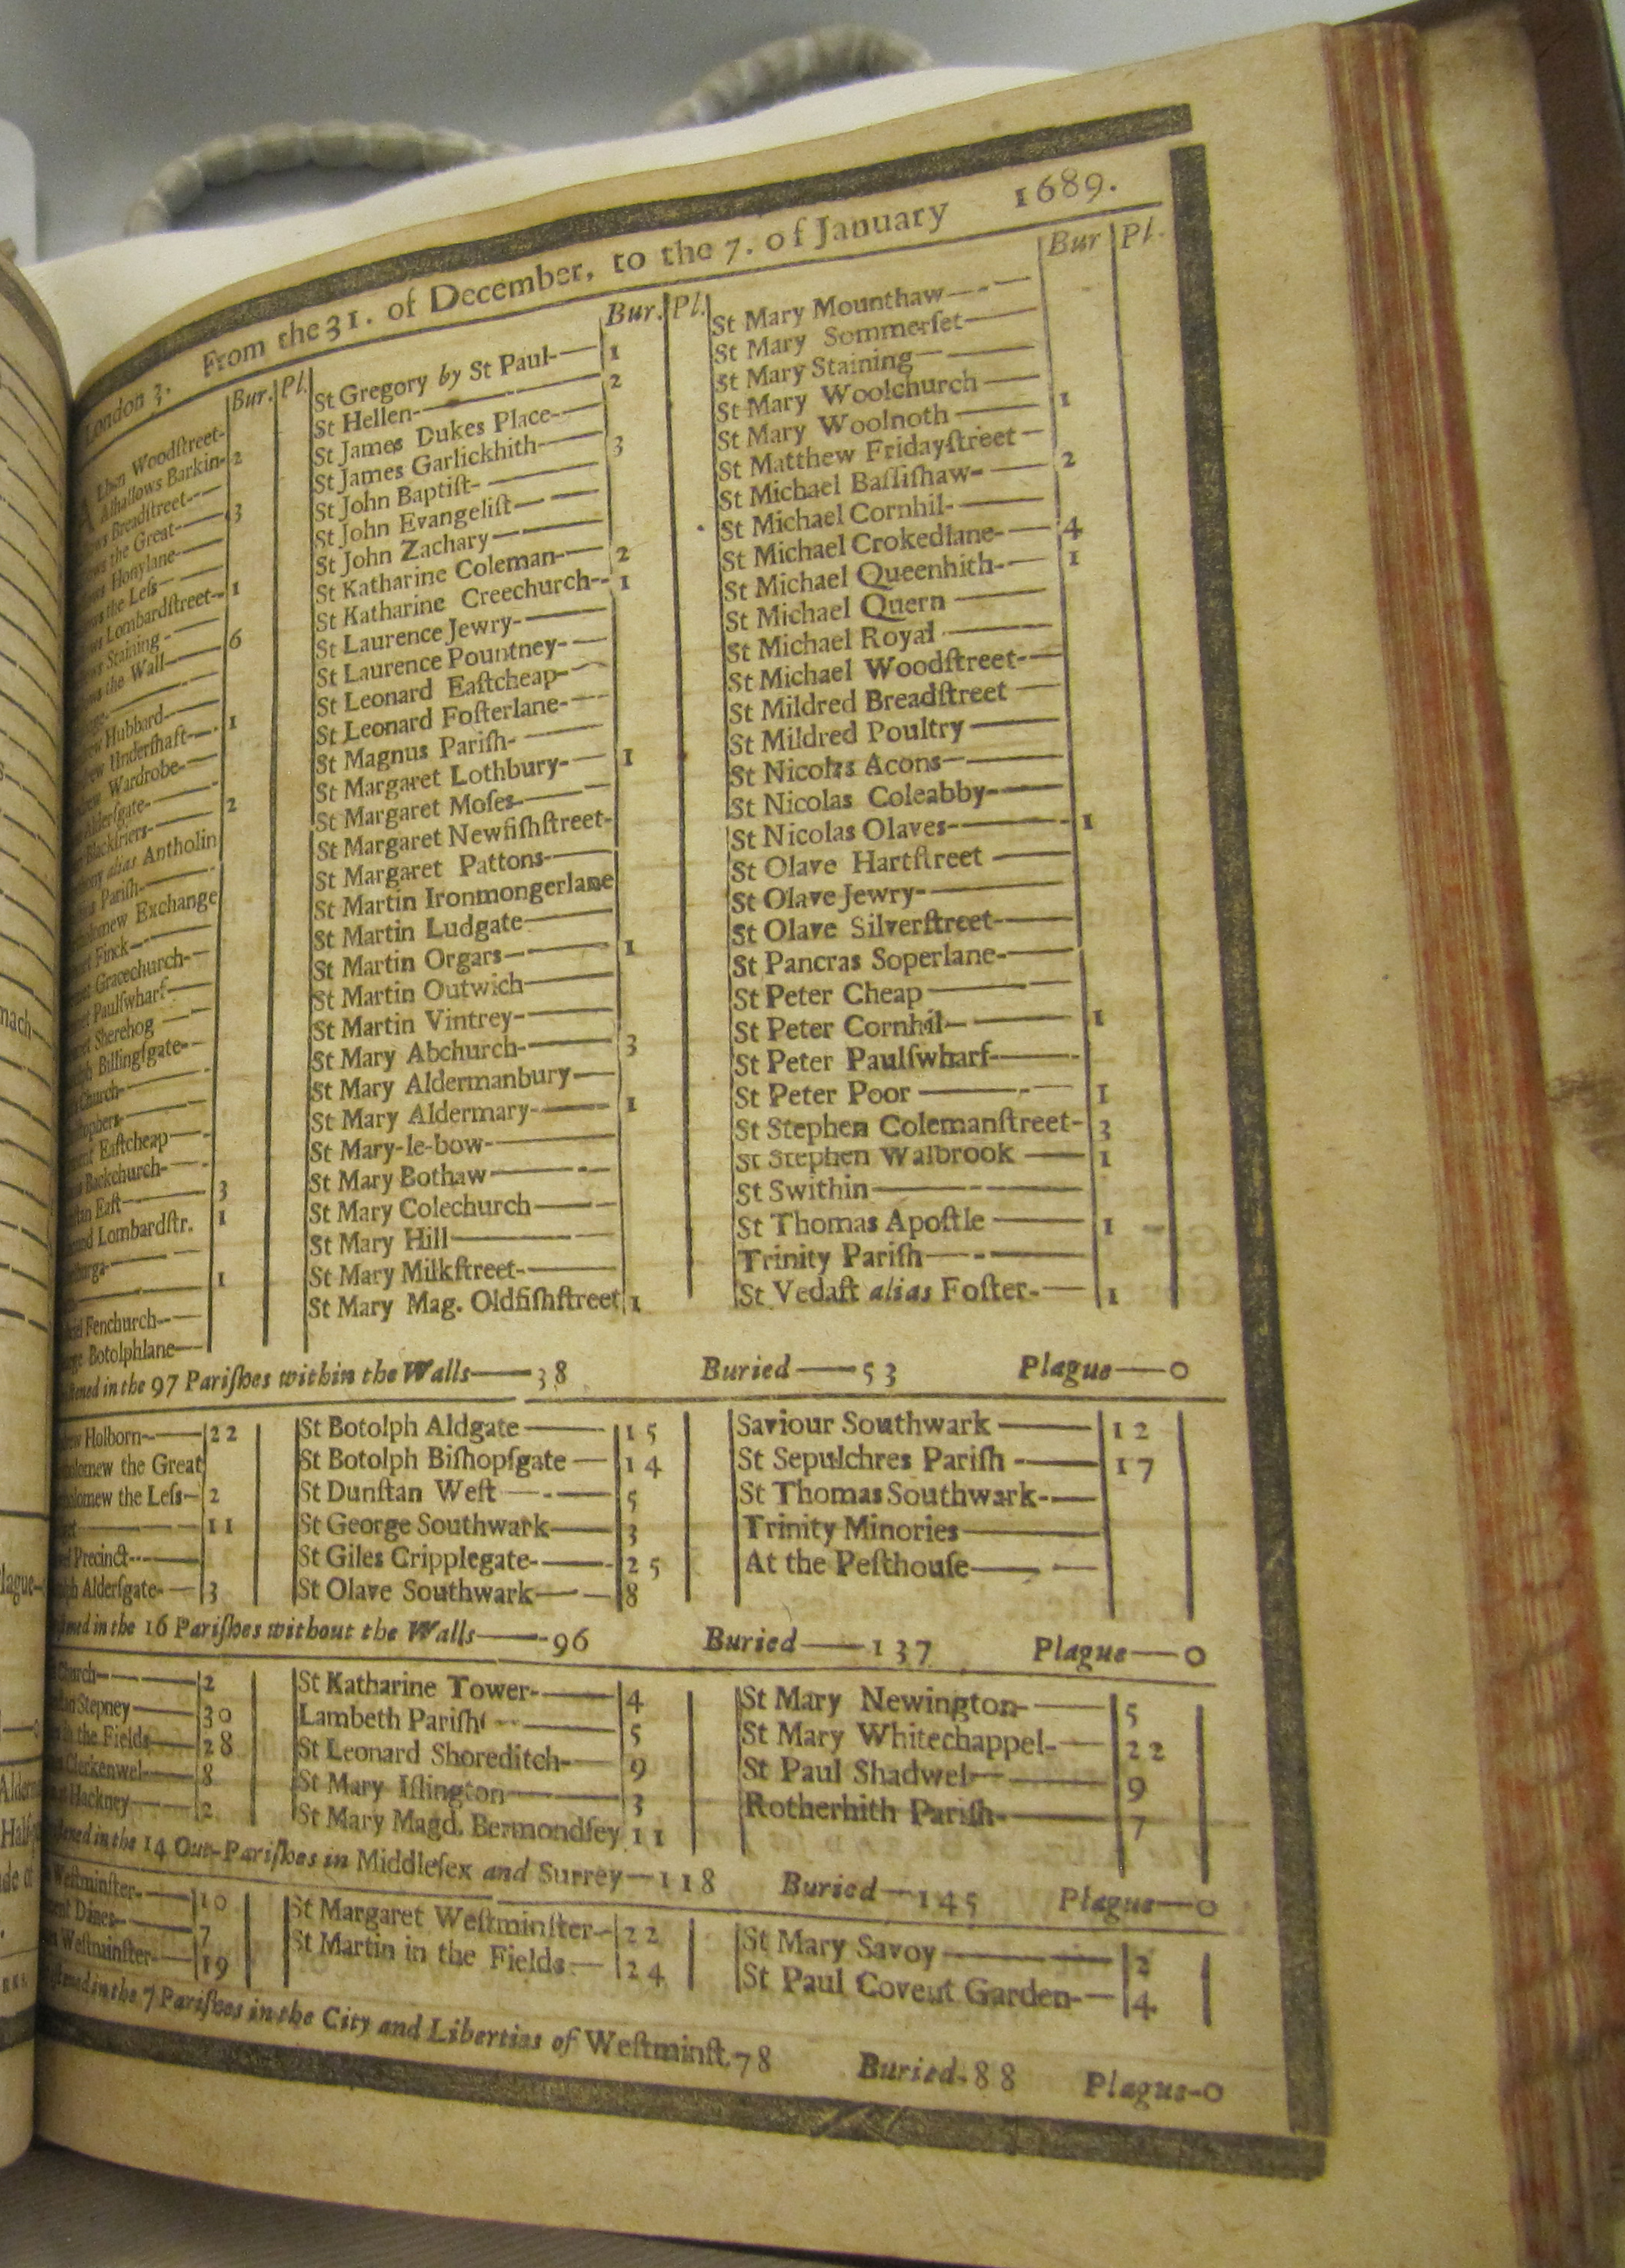 London 3. From the 31. of December, to the 7. of January 1689.
Bur. Pl.
Woodſtreet-
Alhallows Barkin- 2
Breadſtreet-
the Great- 3
Honylane-
the Leſs
Lombardſtreet- 1
Staining-
the Wall 6
Hubbard
Underſhaft 1
Wardrobe-
Alderſgate-
Blackfriers- 2
alias Antholin
Pariſh-
Exchange
Finck
Gracechurch-
Paulſwharf
Sherehog
Billingſgate-
Church-
Eaſtcheap
Backchurch-
Eaſt 3
Lombardſtr. 1
1
Fenchurch-
Botolphlane
Bur. Pl.
St Gregory by St Paul- 1
St Hellen- 2
St James Dukes Place-
St James Garlickhith- 3
St John Baptiſt-
St John Evangeliſt
St John Zachary
St Katharine Coleman- 2
St Katharine Creechurch- 1
St Laurence Jewry-
St Laurence Pountney-
St Leonard Eaſtcheap-
St Leonard Foſterlane-
St Magnus Pariſh-
St Margaret Lothbury- 1
St Margaret Moſes-
St Margaret Newfiſhſtreet-
St Margaret Pattons-
St Martin Ironmongerlane
St Martin Ludgate
St Martin Orgars 1
St Martin Outwich
St Martin Vintrey-
St Mary Abchurch- 3
St Mary Aldermanbury
St Mary Aldermary- 1
St Mary-le-bow-
St Mary Bothaw
St Mary Colechurch
St Mary Hill
St Mary Milkſtreet-
St Mary Mag. Oldfiſhſtreet 1
Bur Pl.
St Mary Mounthaw
St Mary Sommerſet
St Mary Staining
St Mary Woolchurch
St Mary Woolnoth 1
St Matthew Fridayſtreet
St Michael Baſſiſhaw- 2
St Michael Cornhil-
St Michael Crokedlane- 4
St Michael Queenhith- 1
St Michael Quern
St Michael Royal
St Michael Woodſtreet-
St Mildred Breadſtreet
St Mildred Poultry
St Nicolas Acons
St Nicolas Coleabby-
St Nicolas Olaves- 1
St Olave Hartſtreet
St Olave Jewry-
St Olave Silverſtreet-
St Pancras Soperlane-
St Peter Cheap
St Peter Cornhil 1
St Peter Paulſwharf
St Peter Poor 1
St Stephen Colemanſtreet- 3
St Stephen Walbrook 1
St Swithin
St Thomas Apoſtle 1
Trinity Pariſh
St Vedaſt alias Foſter- 1
in the 97 Pariſhes within the Walls—38 Buried—53 Plague—0
Holborn 22
the Great
the Leſs 2
11
Precinct
Alderſgate- 3
St Botolph Aldgate 15
St Botolph Biſhopſgate 14
St Dunſtan Weſt 5
St George Southwark 3
St Giles Cripplegate- 25
St Olave Southwark 8
Saviour Southwark 12
St Sepulchres Pariſh 17
St Thomas Southwark-
Trinity Minories
At the Peſthouſe
in the 16 Pariſhes without the Walls—96 Buried—137 Plague—0
Church 2
Stepney 30
in the Fields 28
Clerkenwel 8
Hackney 2
St Katharine Tower- 4
Lambeth Pariſh 5
St Leonard Shoreditch- 9
St Mary Iſlington 3
St Mary Magd. Bermondſey 11
St Mary Newington- 5
St Mary Whitechappel- 22
St Paul Shadwel 9
Rotherhith Pariſh- 7
in the 14 Out-Pariſhes in Middleſex and Surrey—118 Buried—145 Plague—0
Weſtminſter- 10
Danes 7
Weſtminſter- 19
St Margaret Weſtminſter- 22
St Martin in the Fields 24
St Mary Savoy 2
St Paul Covent Garden- 4
in the 7 Pariſhes in the City and Liberties of Weſtminſt. 78 Buried-88 Plague-0